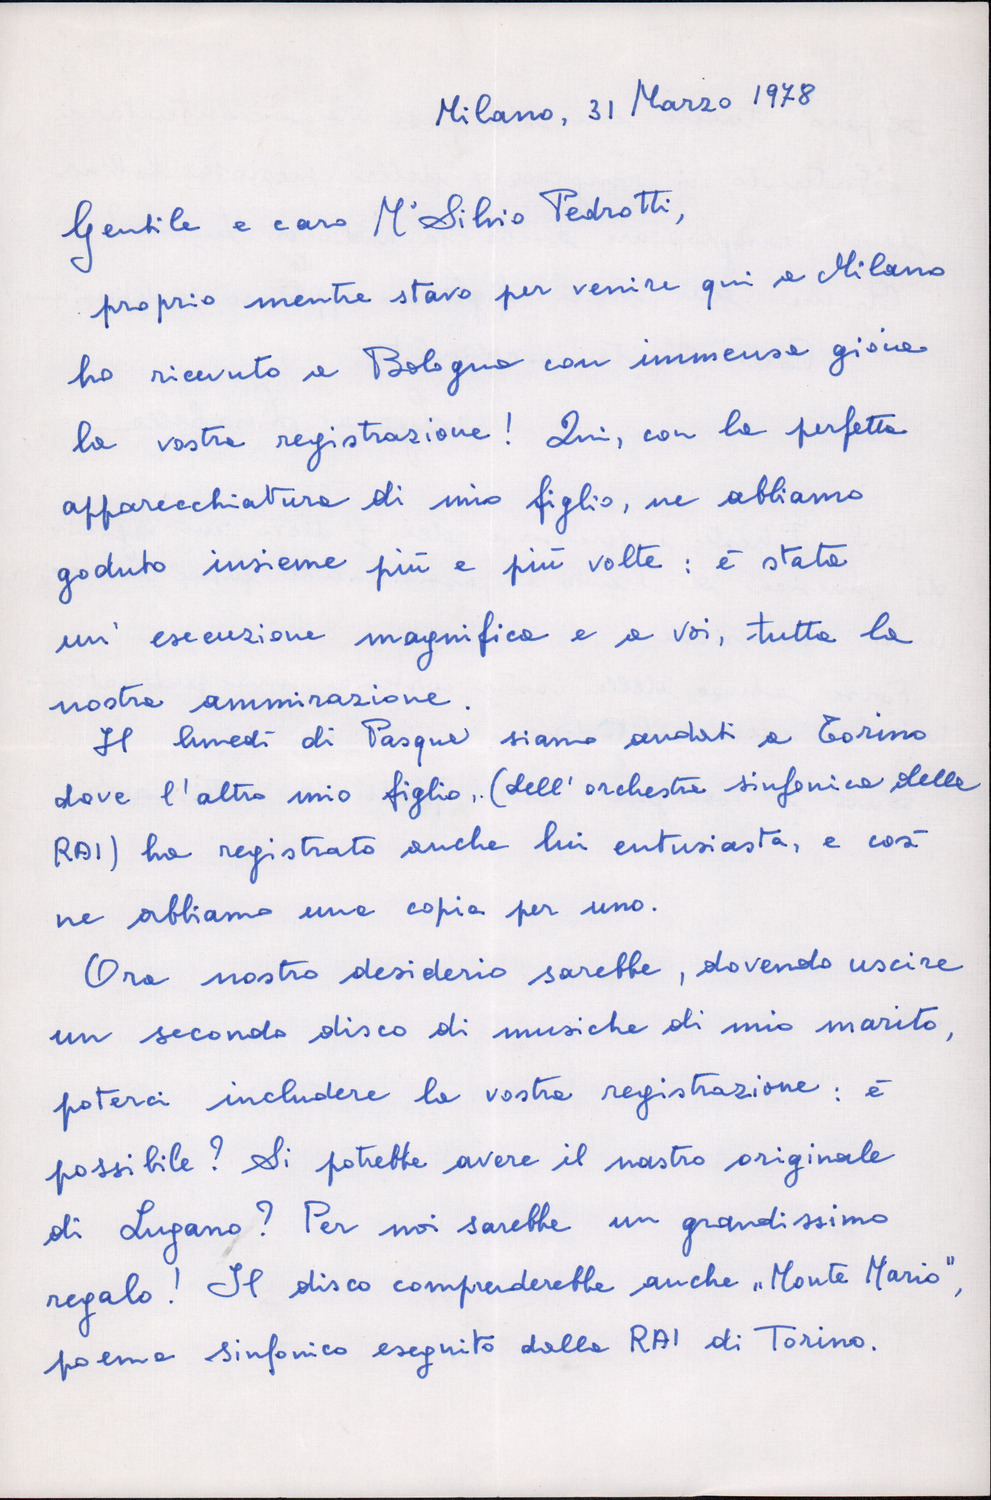 Milano, 31 Marzo 1978
Gentile e caro M° Silvio Pedrotti,
proprio mentre stavo per venire qui a Milano
ho ricevuto a Bologna con immensa gioia
la vostra registrazione! Qui, con la perfetta
apparecchiatura di mio figlio, ne abbiamo
goduto insieme più e più volte: è stata
un' esecuzione magnifica e a voi, tutta la
nostra ammirazione.
Il lunedì di Pasqua siamo andati a Torino
dove l'altro mio figlio, (dell'orchestra sinfonica della
RAI) ha registrato anche lui entusiasta, e così
ne abbiamo una copia per uno.
Ora nostro desiderio sarebbe, dovendo uscire
un secondo disco di musiche di mio marito,
poterci includere la vostra registrazione: è
possibile? Si potrebbe avere il nastro originale
di Lugano? Per noi sarebbe un grandissimo
regalo! Il disco comprenderebbe anche „Monte Mario",
poema sinfonico eseguito dalla RAI di Torino.